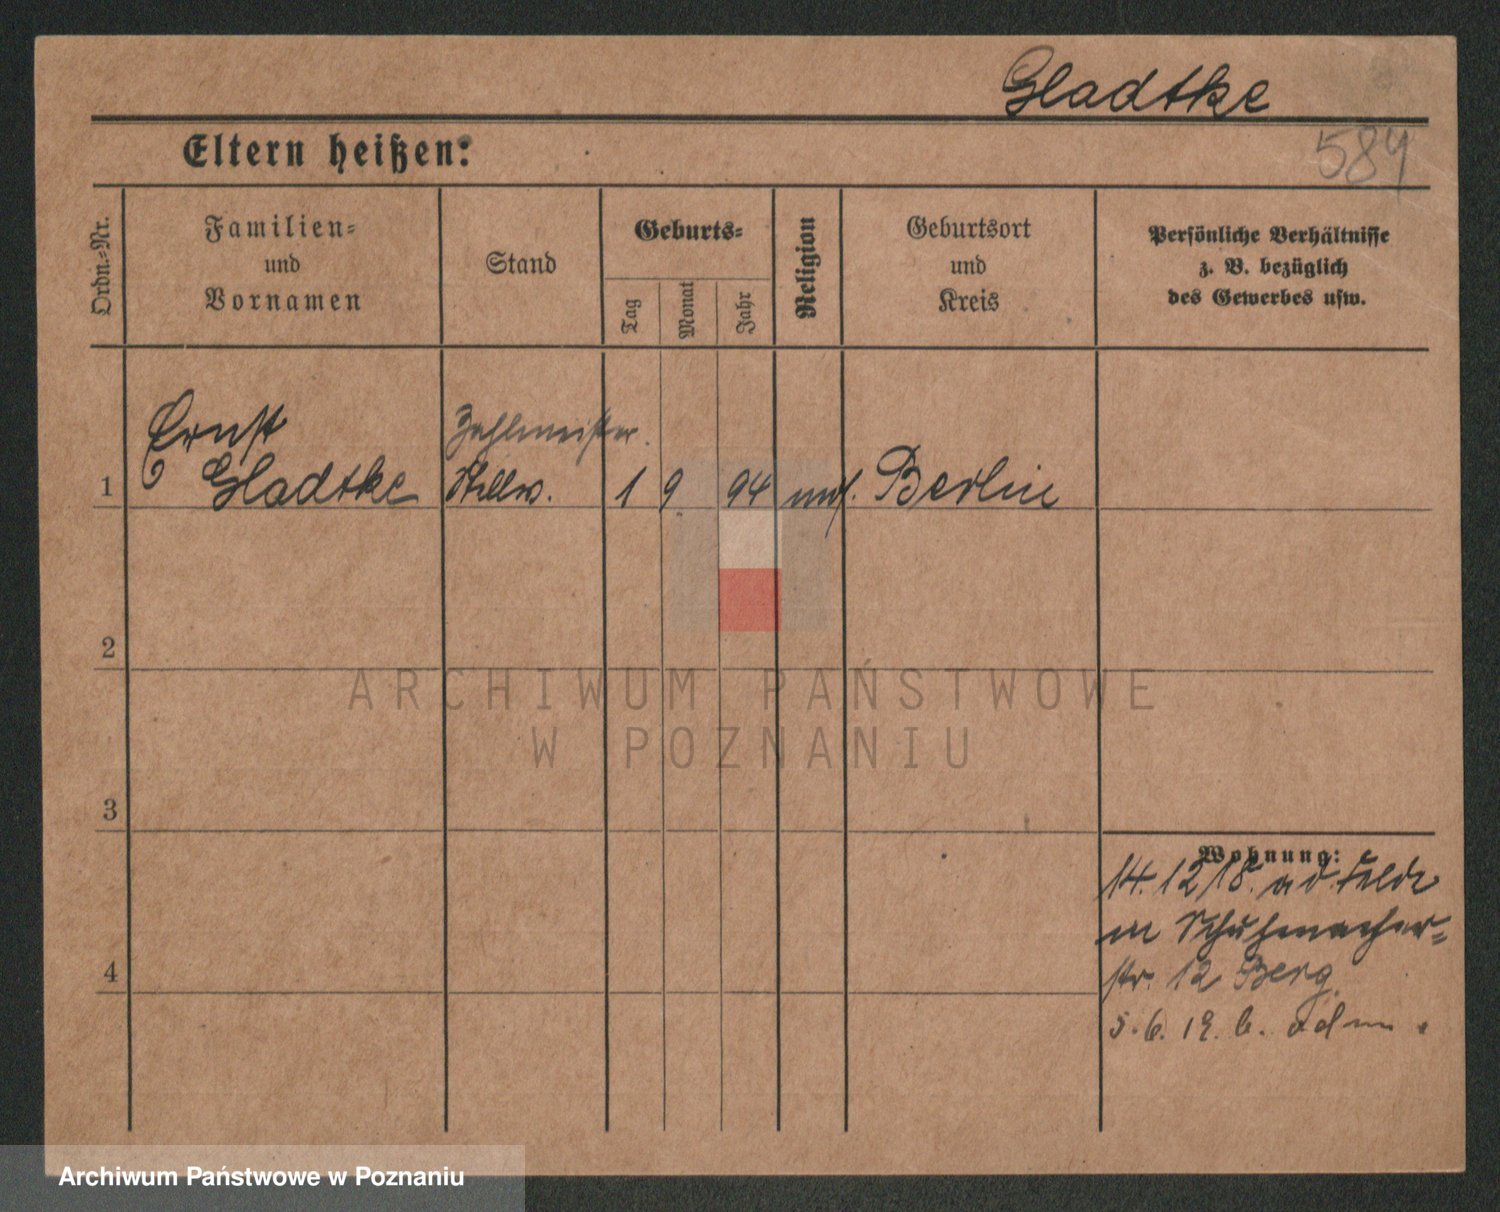 Gladtke
Eltern heißen:
584
Ordn.=Nr.
Familien=
und
Vornamen
Stand
Geburts=
Tag
Monat
Jahr
Religion
Geburtsort
und
Kreis
Persönliche Verhältnisse
z. B. bezüglich
des Gewerbes usw.
Ernst
Gladtke
Zahlmeister
Stellv.
1
1 9 94
Berlin
2
3
4
ARCHIWUM PAŃSTWOWE
W POZNANIU
Wohnung:
14.12.18. a d. Felde
in Schuhmacher=
str. 12 Berg.
5.6.19. b.
Archiwum Państwowe w Poznaniu